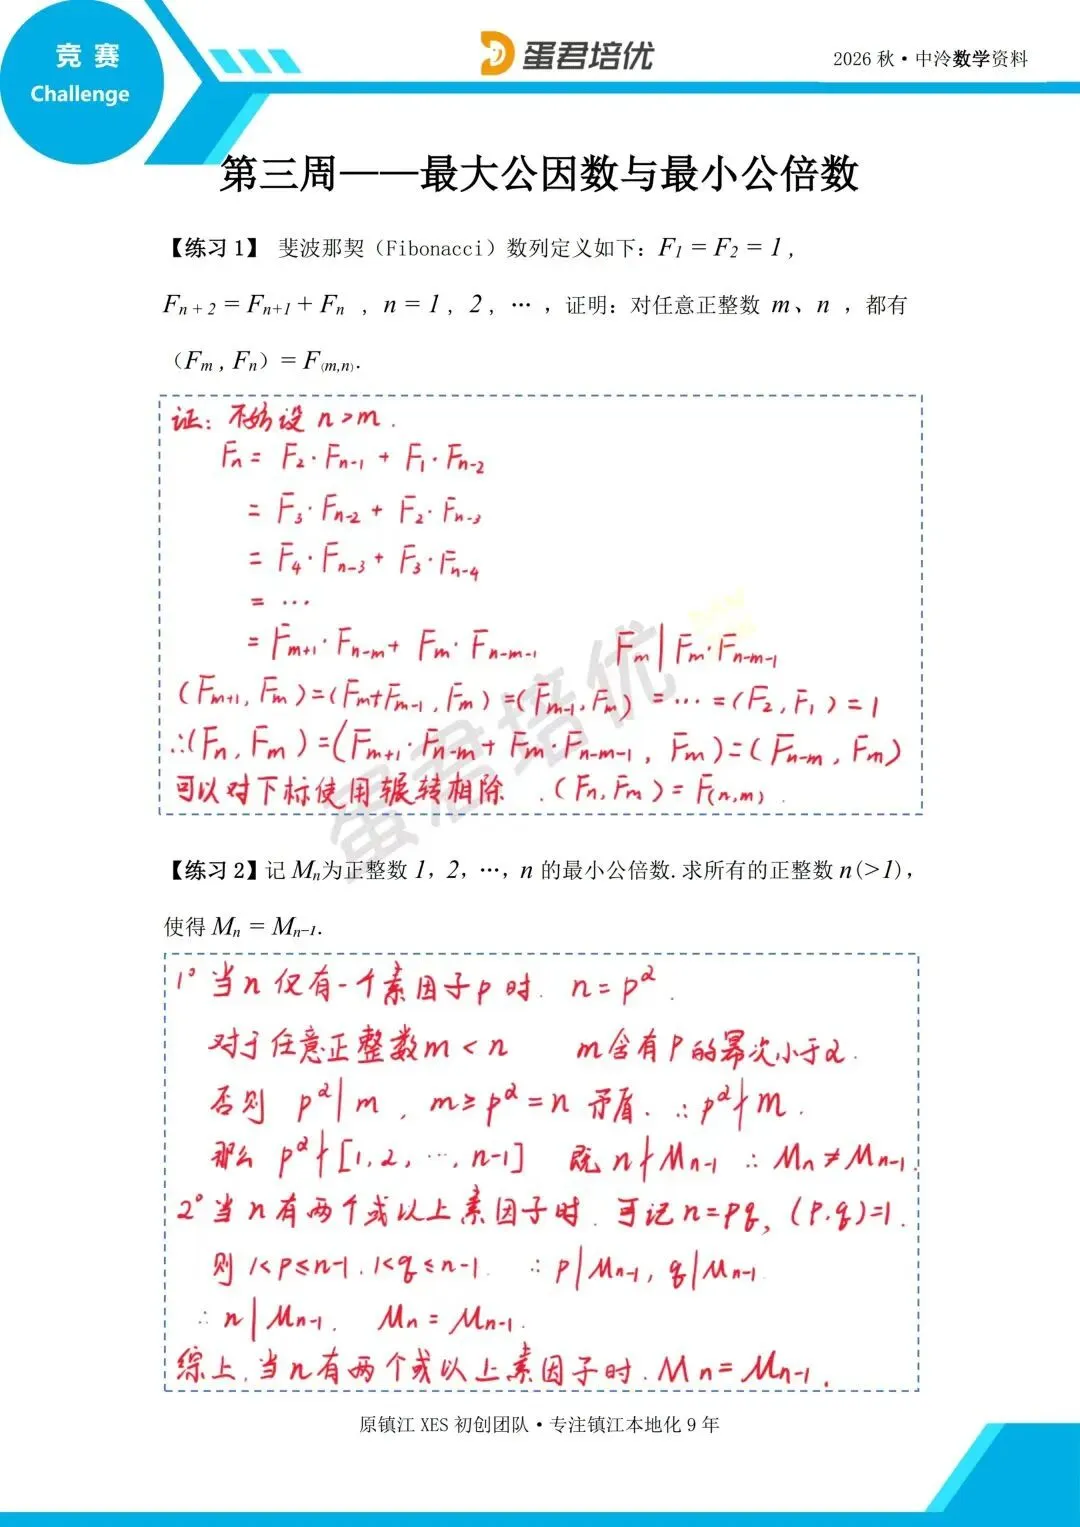 竞 赛
Challenge
蛋君培优
2026 秋·中泠数学资料
第三周——最大公因数与最小公倍数
【练习1】 斐波那契（Fibonacci）数列定义如下：F₁ = F₂ = 1，
Fₙ₊₂ = Fₙ₊₁ + Fₙ ，n = 1，2，… ，证明：对任意正整数 m、n ，都有
（Fₘ , Fₙ）= F₍ₘ,ₙ₎.
证：不妨设 n>m.
Fₙ = F₂·Fₙ₋₁ + F₁·Fₙ₋₂
= F₃·Fₙ₋₂ + F₂·Fₙ₋₃
= F₄·Fₙ₋₃ + F₃·Fₙ₋₄
= …
= Fₘ₊₁·Fₙ₋ₘ + Fₘ·Fₙ₋ₘ₋₁ Fₘ | Fₘ·Fₙ₋ₘ₋₁
(Fₘ₊₁, Fₘ)=(Fₘ+Fₘ₋₁, Fₘ)=(Fₘ₋₁, Fₘ)=…=(F₂, F₁)=1
∴(Fₙ, Fₘ)=(Fₘ₊₁·Fₙ₋ₘ+Fₘ·Fₙ₋ₘ₋₁, Fₘ)=(Fₙ₋ₘ, Fₘ)
可以对下标使用辗转相除 .(Fₙ, Fₘ)=F₍ₙ,ₘ₎.
蛋君培优
【练习2】记 Mₙ为正整数 1，2，…，n 的最小公倍数.求所有的正整数 n(>1)，
使得 Mₙ = Mₙ₋₁.
1° 当 n 仅有一个素因子 p 时. n = p^α.
对于任意正整数 m < n m 含有 P 的幂次小于 α.
否则 p^α | m , m ≥ p^α = n 矛盾. ∴ p^α ∤ m.
那么 p^α ∤ [1, 2, …, n-1] 既 n ∤ Mₙ₋₁ ∴ Mₙ ≠ Mₙ₋₁
2° 当 n 有两个或以上素因子时. 可记 n = pq, (p.q)=1.
则 1<p≤n-1. 1<q≤n-1. ∴ p | Mₙ₋₁, q | Mₙ₋₁
∴ n | Mₙ₋₁. Mₙ = Mₙ₋₁.
综上,当 n 有两个或以上素因子时. Mₙ = Mₙ₋₁.
原镇江 XES 初创团队·专注镇江本地化 9 年